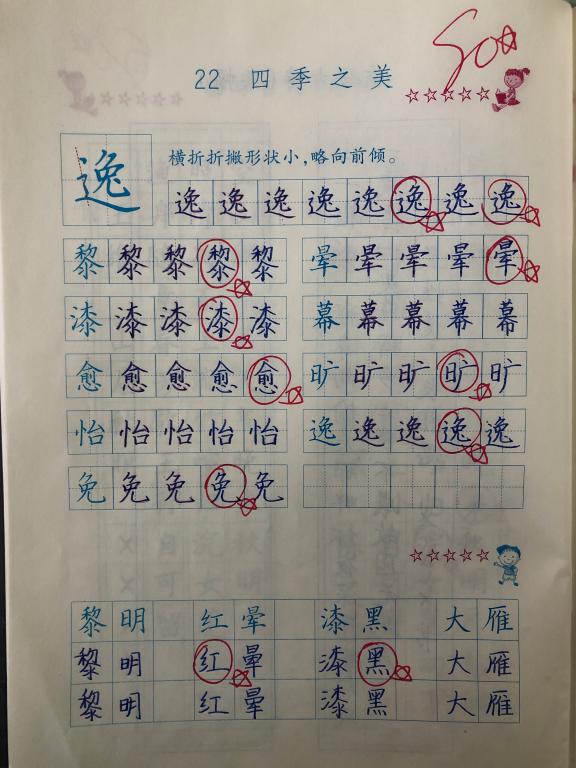 50
22 四季之美
☆☆☆☆☆
横折折撇形状小，略向前倾。
逸
逸逸逸逸逸逸逸逸
黎黎黎黎黎 晕晕晕晕晕
漆漆漆漆漆 幕幕幕幕幕
愈愈愈愈愈 旷旷旷旷旷
怡怡怡怡怡 逸逸逸逸逸
免免免免免
☆☆☆☆☆
黎明 红晕 漆黑 大雁
黎明 红晕 漆黑 大雁
黎明 红晕 漆黑 大雁